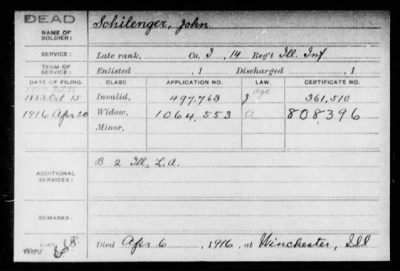 DEAD
NAME OF SOLDIER:
Schilenger, John
SERVICE:
Late rank, Co. I, 14 Reg't Ill. Inf
TERM OF SERVICE:
Enlisted , 1 Discharged , 1
DATE OF FILING. CLASS. APPLICATION NO. LAW. CERTIFICATE NO.
age
Oct 15 Invalid, 497,763 J 361,510
1916 Apr 20 Widow, 1064,553 a 808396
Minor,
ADDITIONAL SERVICES:
B 2 Ill. L.A.
REMARKS:
Died Apr 6, 1916, at Winchester, Ill